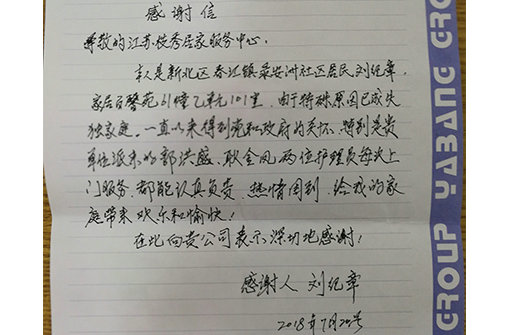 感谢信
尊敬的江苏被秀居家服务中心：
本人是新北区春江镇录安洲社区居民刘纪章，
家居百馨苑61幢乙单元101室，由于特殊原因已成失
独家庭。一直以来得到党和政府的关怀，特别是贵
单位派来的郭洪盛、耿金凤两位护理员每次上
门服务，都能认真负责，热情周到，给我的家
庭带来欢乐和愉快！
在此向贵公司表示深切地感谢！
感谢人 刘纪章
2018年7月20号
YABANG GROUP
YABANG GROUP